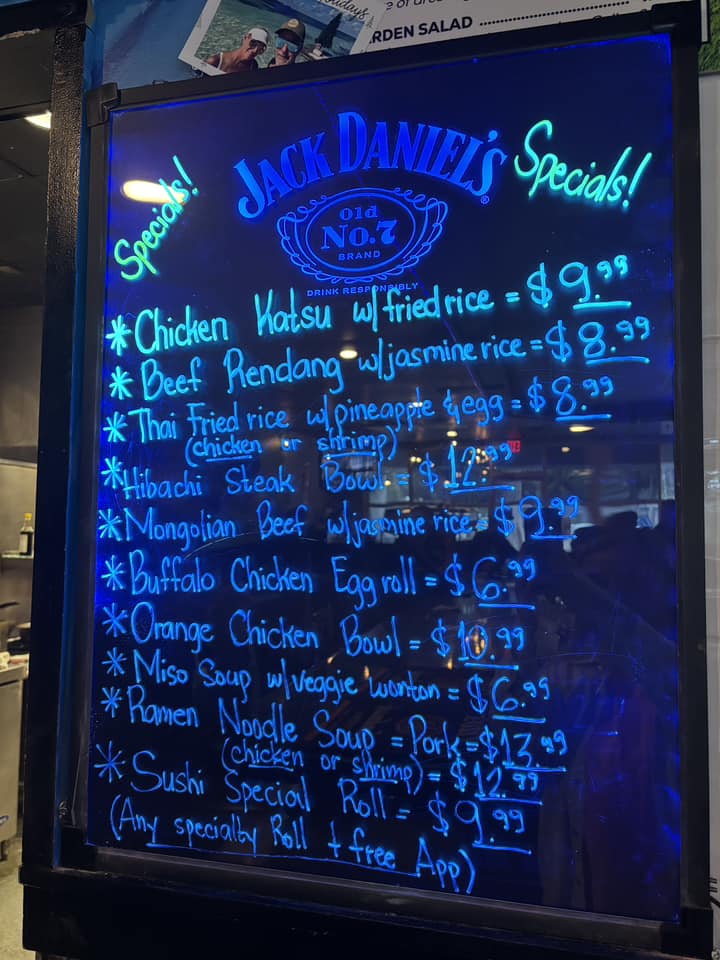 holidays
RDEN SALAD
Specials!
JACK DANIEL'S
Specials!
Old
No.7
BRAND
DRINK RESPONSIBLY
*Chicken Katsu w/ fried rice = $9.99
*Beef Rendang w/jasmine rice = $8.99
*Thai Fried rice w/ pineapple & egg = $8.99
(chicken or shrimp)
*Hibachi Steak Bowl = $12.99
*Mongolian Beef w/jasmine rice = $9.99
*Buffalo Chicken Egg roll = $6.99
*Orange Chicken Bowl = $10.99
*Miso Soup w/veggie wonton = $6.99
*Ramen Noodle Soup = Pork = $13.99
(chicken or shrimp) = $12.99
*Sushi Special Roll = $9.99
(Any specialty Roll + free App)